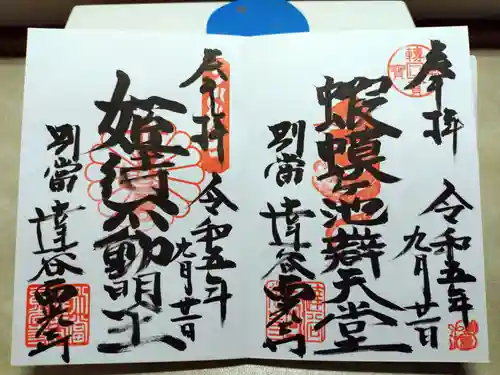 奉拝
令和五年
九月廿一日
蝦蟆ヶ池辯天堂
別當
達谷西光寺
奉拝
令和五年
九月廿一日
姫待不動明王
別當
達谷西光寺